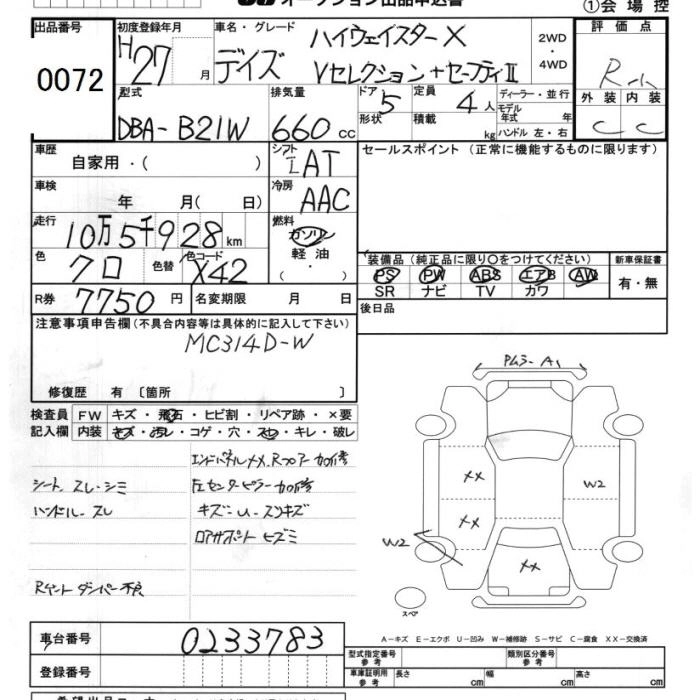 オークション出品申込書
①会場控
出品番号
0072
初度登録年月
H27 月
車名・グレード
デイズ
ハイウェイスターX
Vセレクション+セーフティⅡ
2WD
・
4WD
評価点
外装 内装
C C
型式
DBA-B21W
排気量
660 cc
ドア 5
形状
定員 4人
積載 kg
ディーラー・並行
モデル
年式 年
ハンドル 左・右
車歴
自家用・( )
シフト
AT
セールスポイント (正常に機能するものに限ります)
車検
年 月( 日)
冷房
AAC
走行
10万5千928km
燃料
ガソリン
軽油・
( )
色
クロ
色替
色コード
X42
装備品(純正品に限り○をつけてください)
PS PW ABS エアB AW
SR ナビ TV カワ
新車保証書
有・無
R券
7750円
名変期限 月 日
後日品
注意事項申告欄(不具合内容等は具体的に記入して下さい)
MC314D-W
修復歴 有〔箇所 〕
検査員
記入欄
FW キズ・飛石・ヒビ割・リペア跡・×要
内装 キズ・汚レ・コゲ・穴・スレ・キレ・破レ
エンドパネルXX、Rフロアー加修
シート スレ・シミ
左センターピラー加修
ハンドル・スレ
キズー U - スリキズ
ロアサポート ヒズミ
Rゲートダンパー不良
A1
XX
W2
XX
W2
XX
スペア
A-キズ E-エクボ U-凹み W-補修跡 S-サビ C-腐食 XX-交換済
車台番号
0233783
登録番号
型式指定番号
参考
類別区分番号
参考
車庫証明用
参考
長さ cm
幅 cm
高さ cm